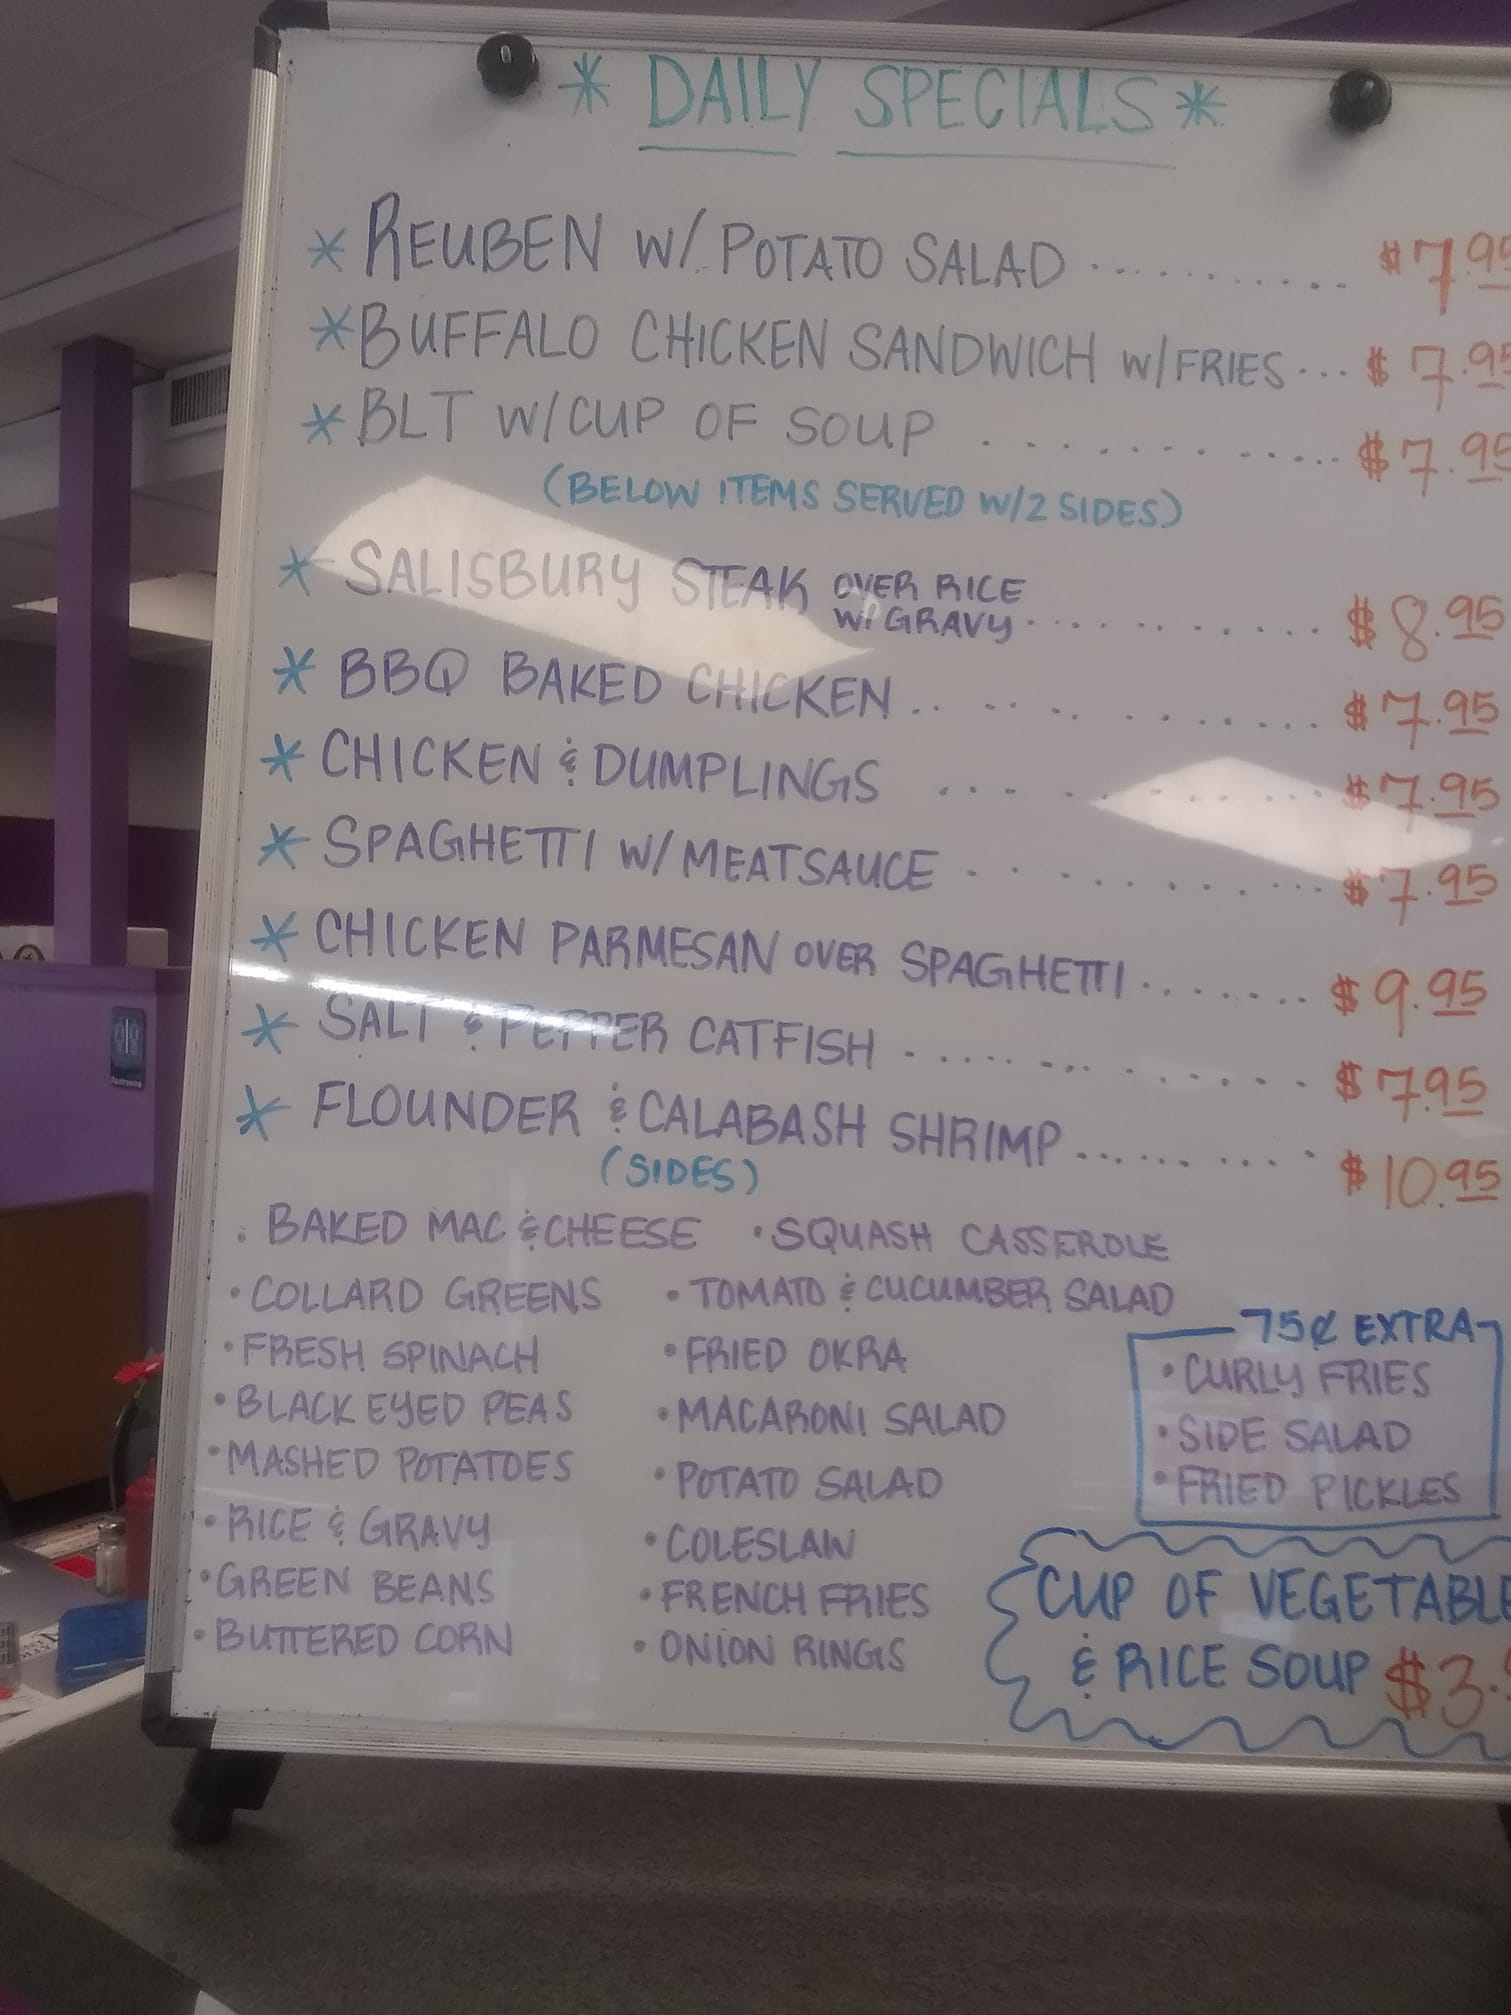 * DAILY SPECIALS *
* REUBEN W/ POTATO SALAD .......... $7.95
* BUFFALO CHICKEN SANDWICH W/FRIES ... $7.95
* BLT W/CUP OF SOUP .......... $7.95
(BELOW ITEMS SERVED W/2 SIDES)
* SALISBURY STEAK OVER RICE
W/ GRAVY .......... $8.95
* BBQ BAKED CHICKEN .......... $7.95
* CHICKEN & DUMPLINGS .......... $7.95
* SPAGHETTI W/ MEATSAUCE .......... $7.95
* CHICKEN PARMESAN OVER SPAGHETTI ....... $9.95
* SALT & PEPPER CATFISH .......... $7.95
* FLOUNDER & CALABASH SHRIMP .......... $10.95
(SIDES)
• BAKED MAC & CHEESE • SQUASH CASSEROLE
• COLLARD GREENS • TOMATO & CUCUMBER SALAD
• FRESH SPINACH • FRIED OKRA
• BLACK EYED PEAS • MACARONI SALAD
• MASHED POTATOES • POTATO SALAD
• RICE & GRAVY • COLESLAW
• GREEN BEANS • FRENCH FRIES
• BUTTERED CORN • ONION RINGS
75¢ EXTRA
• CURLY FRIES
• SIDE SALAD
• FRIED PICKLES
CUP OF VEGETABLE
& RICE SOUP $3.
Restrooms